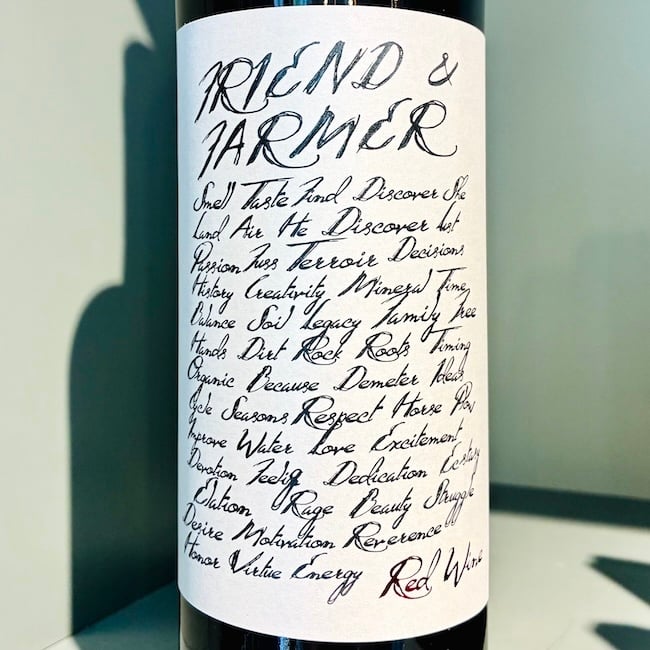 FRIEND &
FARMER
Smell Taste Find Discover She
Land Air He Discover Lust
Passion Fuss Terroir Decisions
History Creativity Mineral Time
Balance Soil Legacy Family Tree
Hands Dirt Rock Roots Timing
Organic Because Demeter Ideas
Cycle Seasons Respect Horse Plow
Improve Water Love Excitement
Devotion Feelig Dedication Ecstasy
Elation Rage Beauty Struggle
Desire Motivation Reverence
Honor Virtue Energy Red Wine